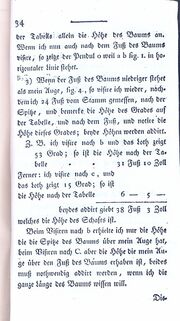 34
der Tabelle allein die Höhe des Baums an.
Wenn ich nun auch nach dem Fuß des Baums
visire, so zeigt der Pendul o weil a b fig. 1. in ho-
rizontaler Linie stehet.
3) Wenn der Fuß des Baums niedriger stehet
als mein Auge, fig. 4., so visire ich wieder, nach-
dem ich 24 Fuß vom Stamm gemessen, nach der
Spitze, und bemerke die Höhe des Grades auf
der Tabelle, und nach dem Fuß, und notire die
Höhe dieses Grades; beyde Höhen werden addirt.
Z. B. ich visire nach b und das loth zeigt
53 Grad; so ist die Höhe nach der Ta-
belle • 31 Fuß 10 Zoll
Ferner: ich visire nach c, und
das loth zeigt 15 Grad; so ist
die Höhe nach der Tabelle 6 — 5 —
beydes addirt giebt 38 Fuß 3 Zoll
welches die Höhe des Schafts ist.
Beym Visiren nach b erhielte ich nur die Höhe
die die Spitze des Baums über mein Auge hat,
beym Visiren nach C. aber die Höhe die mein Au-
ge über den Fuß des Baums erhaben ist, beides
muß nothwendig addirt werden, wenn ich die
ganze länge des Baums wissen will.
Die-